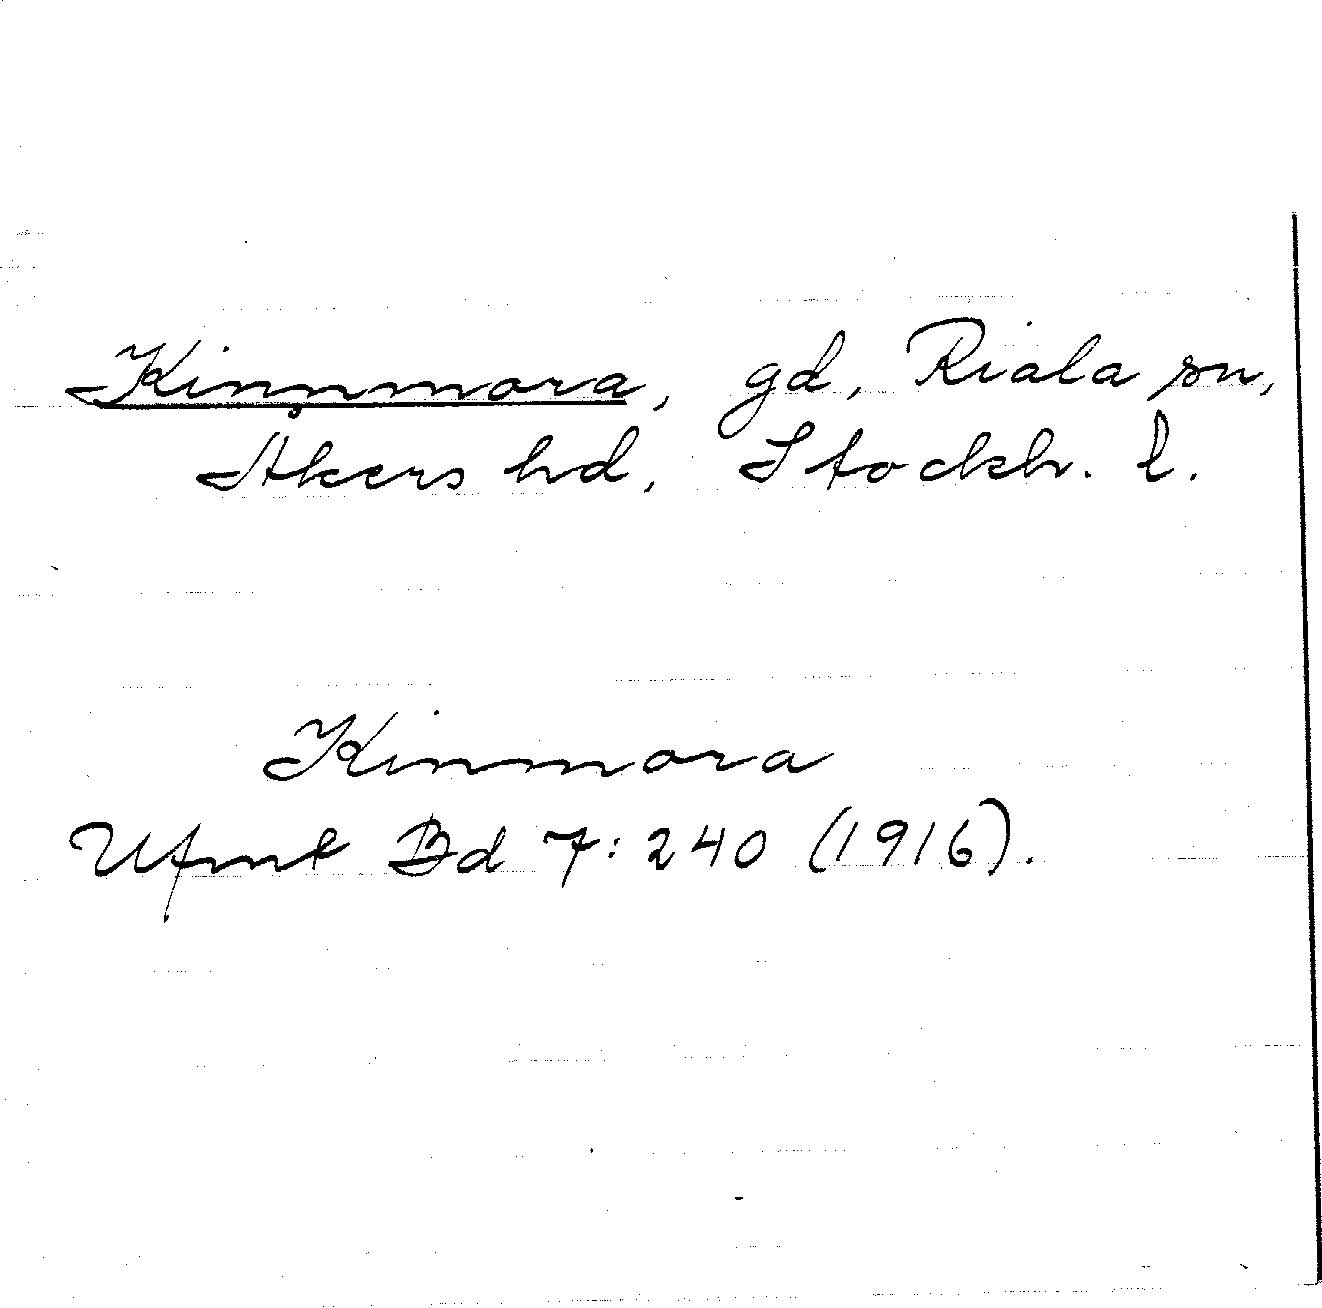 Kinnmora, gd, Riala sn,
Åkers hd, Stockh. l.
Kinmora
Ufmt Bd 7: 240 (1916).